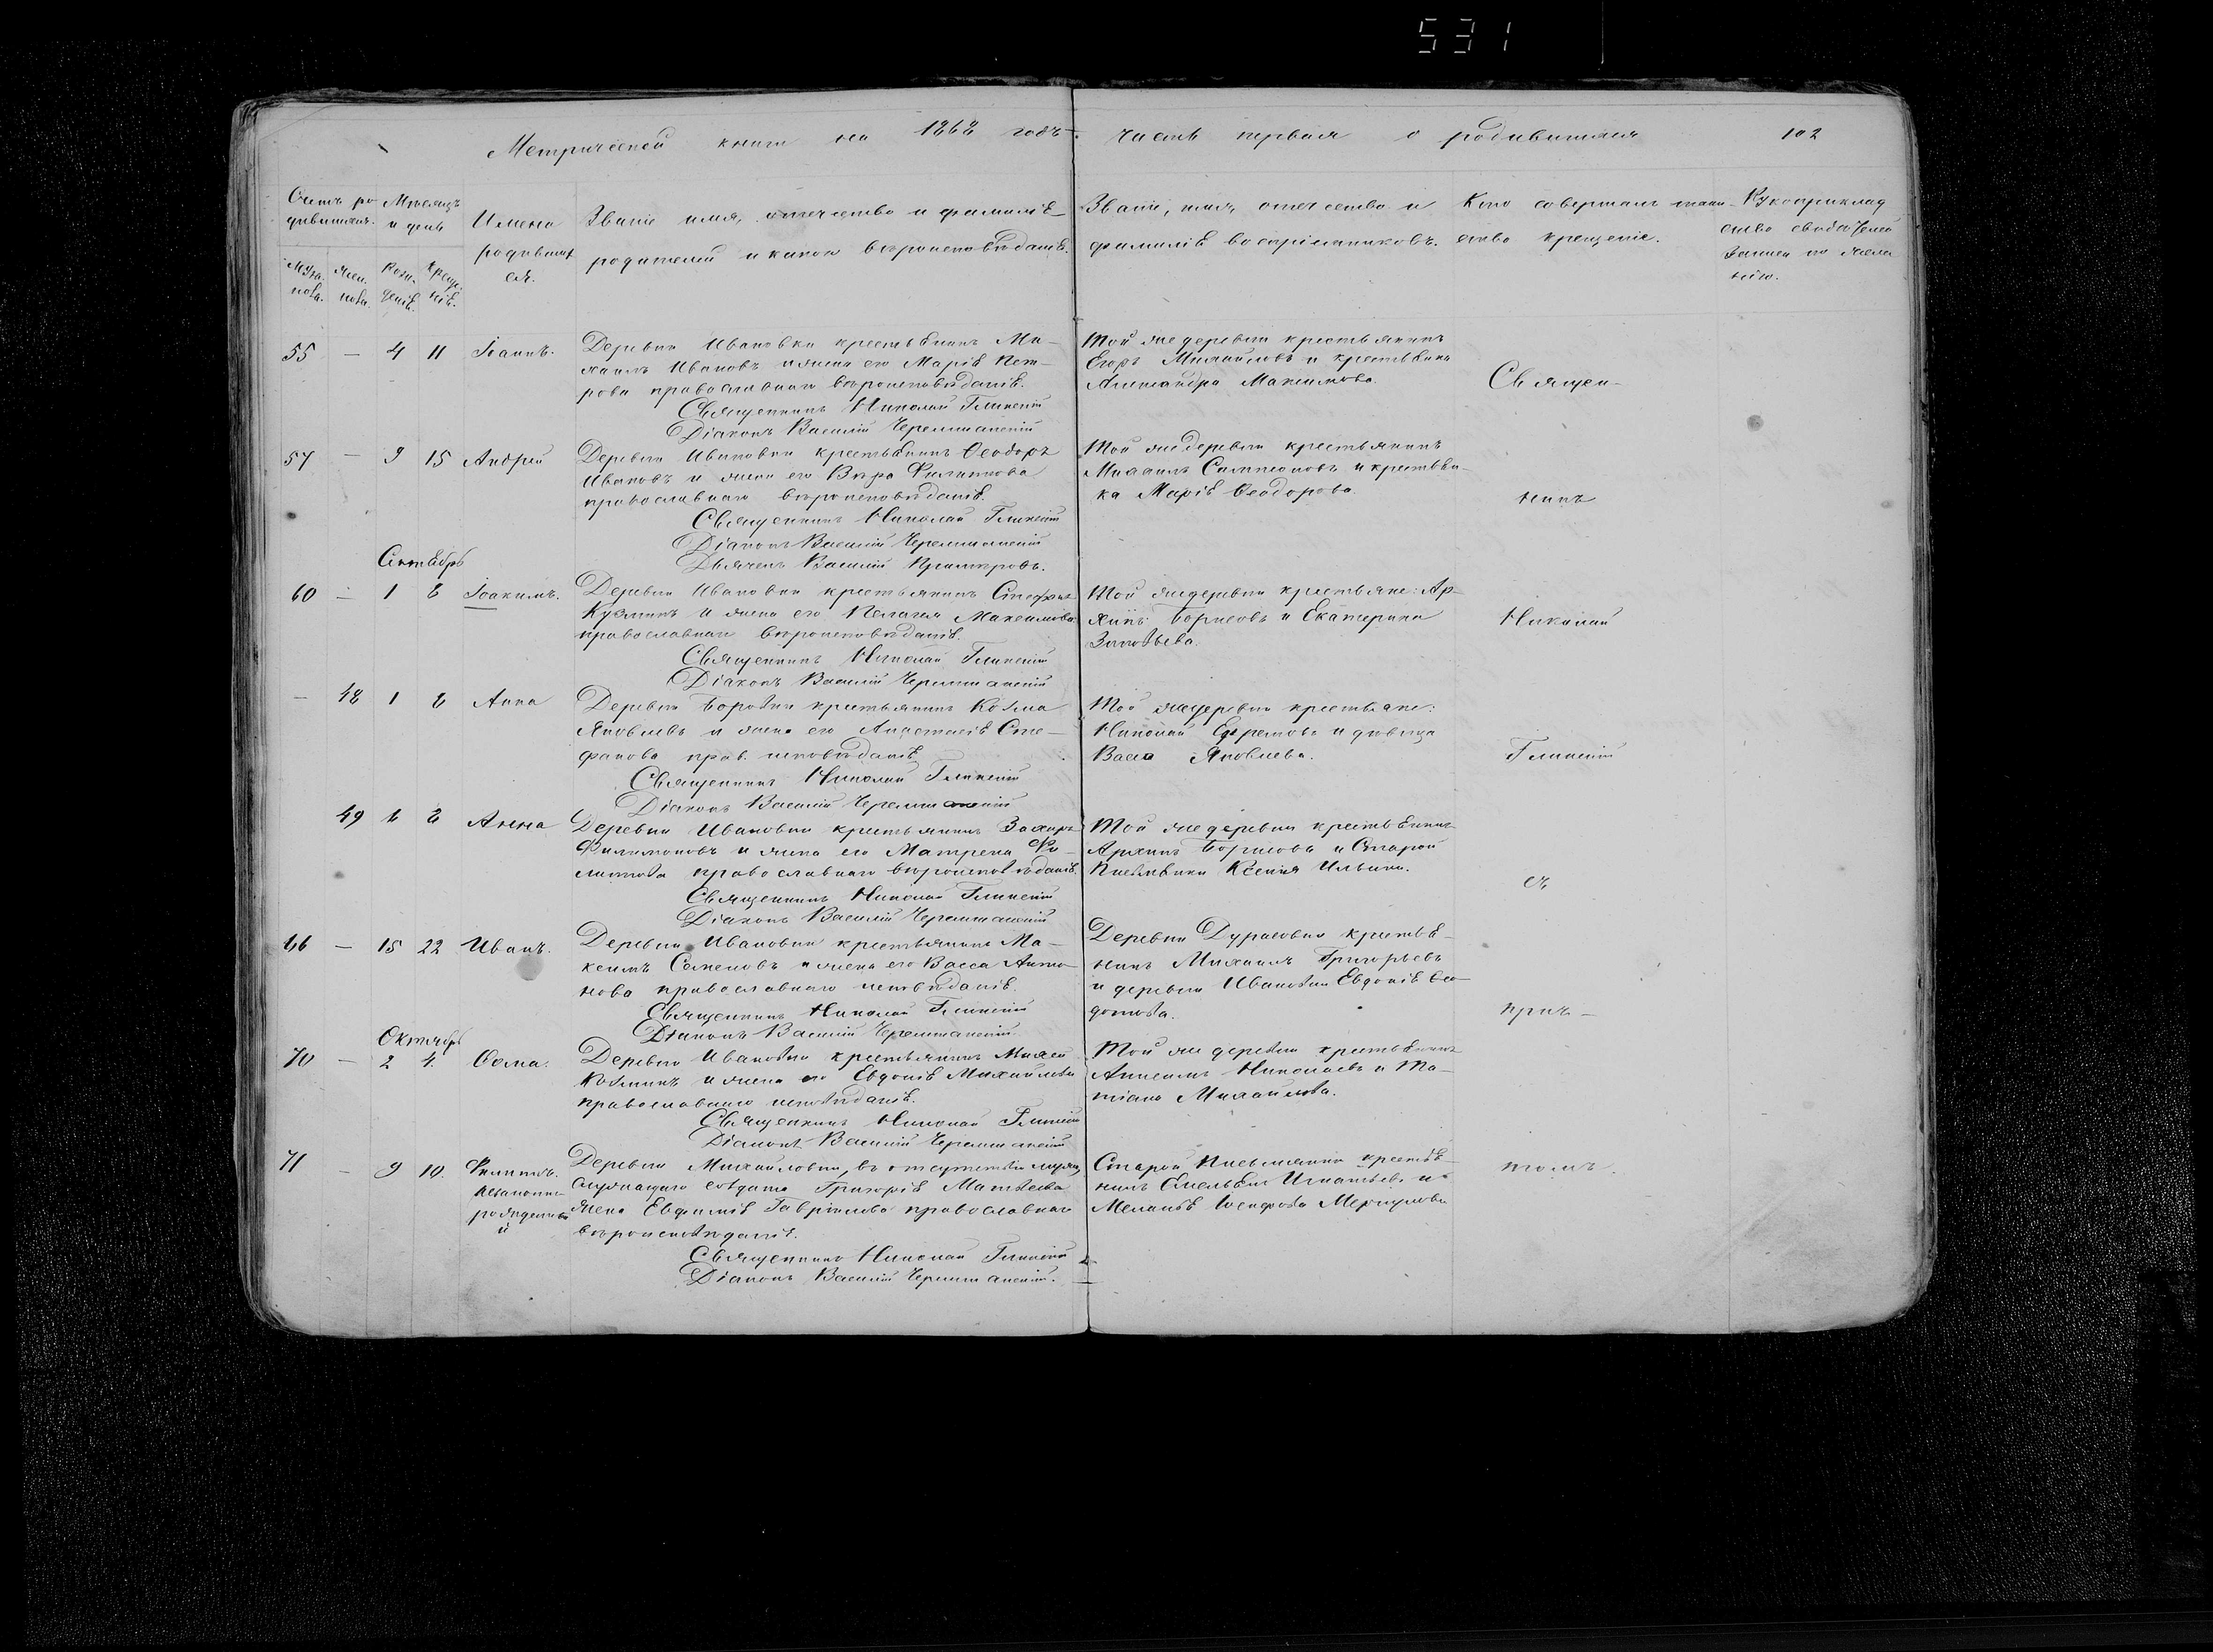 531
Метрической книги на 1868 годъ.
часть первая о родившихся
102
Счетъ ро
дившихся.
Мѣсяцъ
и день
Имена
родивших
ся.
Муж.
пола.
Жен.
пола.
Рож-
денія.
Креще-
нія.
Званіе имя, отчество и фамилія
родителей и какого вѣроисповѣданія.
Званіе, имя, отчество и
фамилія воспріемниковъ.
Кто совершалъ таин-
ство крещенія.
Рукоприклад
ство свидѣтелей
записи по жела
нію.
55 — 4 11 Іоаннъ.
Деревни Ивановки крестьянинъ Ми-
хаилъ Ивановъ и жена его Марія Пет-
рова православнаго вѣроисповѣданія.
Священникъ Николай Глинскій
Діаконъ Василій Черемшанскій
Той же деревни крестьянинъ
Егоръ Михайловъ и крестьянка
Александра Максимова.
Священ-
57 — 9 15 Андрей
Деревни Ивановки крестьянинъ Ѳеодоръ
Ивановъ и жена его Вѣра Филиппова
православнаго вѣроисповѣданія.
Священникъ Николай Глинскій
Діаконъ Василій Черемшанскій
Дьячекъ Василій
Той же деревни крестьянинъ
Михаилъ Симеоновъ и крестьян-
ка Марія Ѳеодорова.
никъ
Сентябрь
60 — 1 8 Іоакимъ.
Деревни Ивановки крестьянинъ Стефанъ
Кузминъ и жена его Пелагея Максимова
православнаго вѣроисповѣданія.
Священникъ Николай Глинскій
Діаконъ Василій Черемшанскій
Той же деревни крестьяне: Ар-
хипъ Борисовъ и Екатерина
Зиновьева.
Николай
— 48 1 8 Анна
Деревни Боровки крестьянинъ Козма
Яковлевъ и жена его Анастасія Сте-
фанова прав. исповѣданія
Священникъ Николай Глинскій
Діаконъ Василій Черемшанскій
Той же деревни крестьяне:
Николай Ефремовъ и дѣвица
Васса Яковлева.
Глинскій
49 1 8 Анна
Деревни Ивановки крестьянинъ Захаръ
Филимоновъ и жена его Матрена Фи-
липпова православнаго вѣроисповѣданія.
Священникъ Николай Глинскій
Діаконъ Василій Черемшанскій
Той же деревни крестьянинъ
Архипъ Борисовъ и Старой
Ксенія Ильина.
съ
66 — 15 22 Иванъ.
Деревни Ивановки крестьянинъ Ма-
ксимъ Семеновъ и жена его Васса Анто-
нова православнаго исповѣданія.
Священникъ Николай Глинскій
Діаконъ Василій Черемшанскій.
Деревни Дурасовки крестья-
нинъ Михаилъ Григорьевъ
и деревни Ивановки Евдокія Ѳео-
дотова.
прич-
Октябрь
70 — 2 4. Ѳома.
Деревни Ивановки крестьянинъ Михей
Козминъ и жена его Евдокія Михайлова
православнаго исповѣданія.
Священникъ Николай Глинскій
Діаконъ Василій Черемшанскій
Той же деревни крестьянинъ
Николаевъ и Та-
тіана Михайлова.
71 — 9 10. Филиппъ.
незаконно-
рожденны
й
Деревни Михайловки, въ отсутствіи мужа
служащаго солдата Григорія Матвѣева
жена Евфимія Гавріилова православнаго
вѣроисповѣданія.
Священникъ Николай Глинскій
Діаконъ Василій Черемшанскій.
Старой крестья-
нинъ Емельянъ Игнатьевъ и
Меланія Меркулова
томъ.